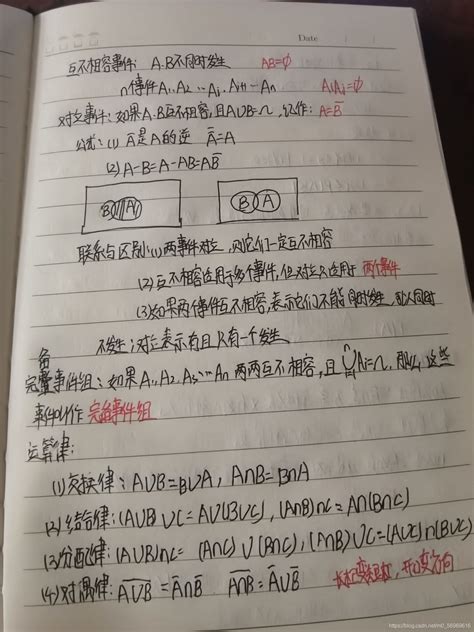 Date
互不相容事件: A.B不同时发生 AB=∅
n个事件A₁.A₂…Aᵢ.Aᵢ₊₁…An AᵢAⱼ=∅
对立事件:如果A.B互不相容,且A∪B=Ω,记作: A=B̅
公式:(1) A̅是A的逆 A̿=A
(2) A-B=A-AB=AB̅
B A B A
联系与区别:(1)两事件对立,则它们一定互不相容
(2)互不相容适用于多个事件,但对立只适用于 两个事件
(3)如果两个事件互不相容,表示它们不能同时发生,可以同时
不发生;对立表示有且只有一个发生
备
完事件组:如果A₁,A₂,A₃…An 两两互不相容,且⋃Aᵢ=Ω,则 这些
事件叫作 完备事件组
运算律:
(1)交换律:A∪B=B∪A, A∩B=B∩A
(2)结合律:(A∪B)∪C=A∪(B∪C),(A∩B)∩C=A∩(B∩C)
(3)分配律:(A∪B)∩C=(A∩C)∪(B∩C),(A∩B)∪C=(A∪C)∩(B∪C)
(4)对偶律: A∪B̅=A̅∩B̅ A∩B̅=A̅∪B̅ 长杠变短杠,开口变方向
https://blog.csdn.net/m0_56989616